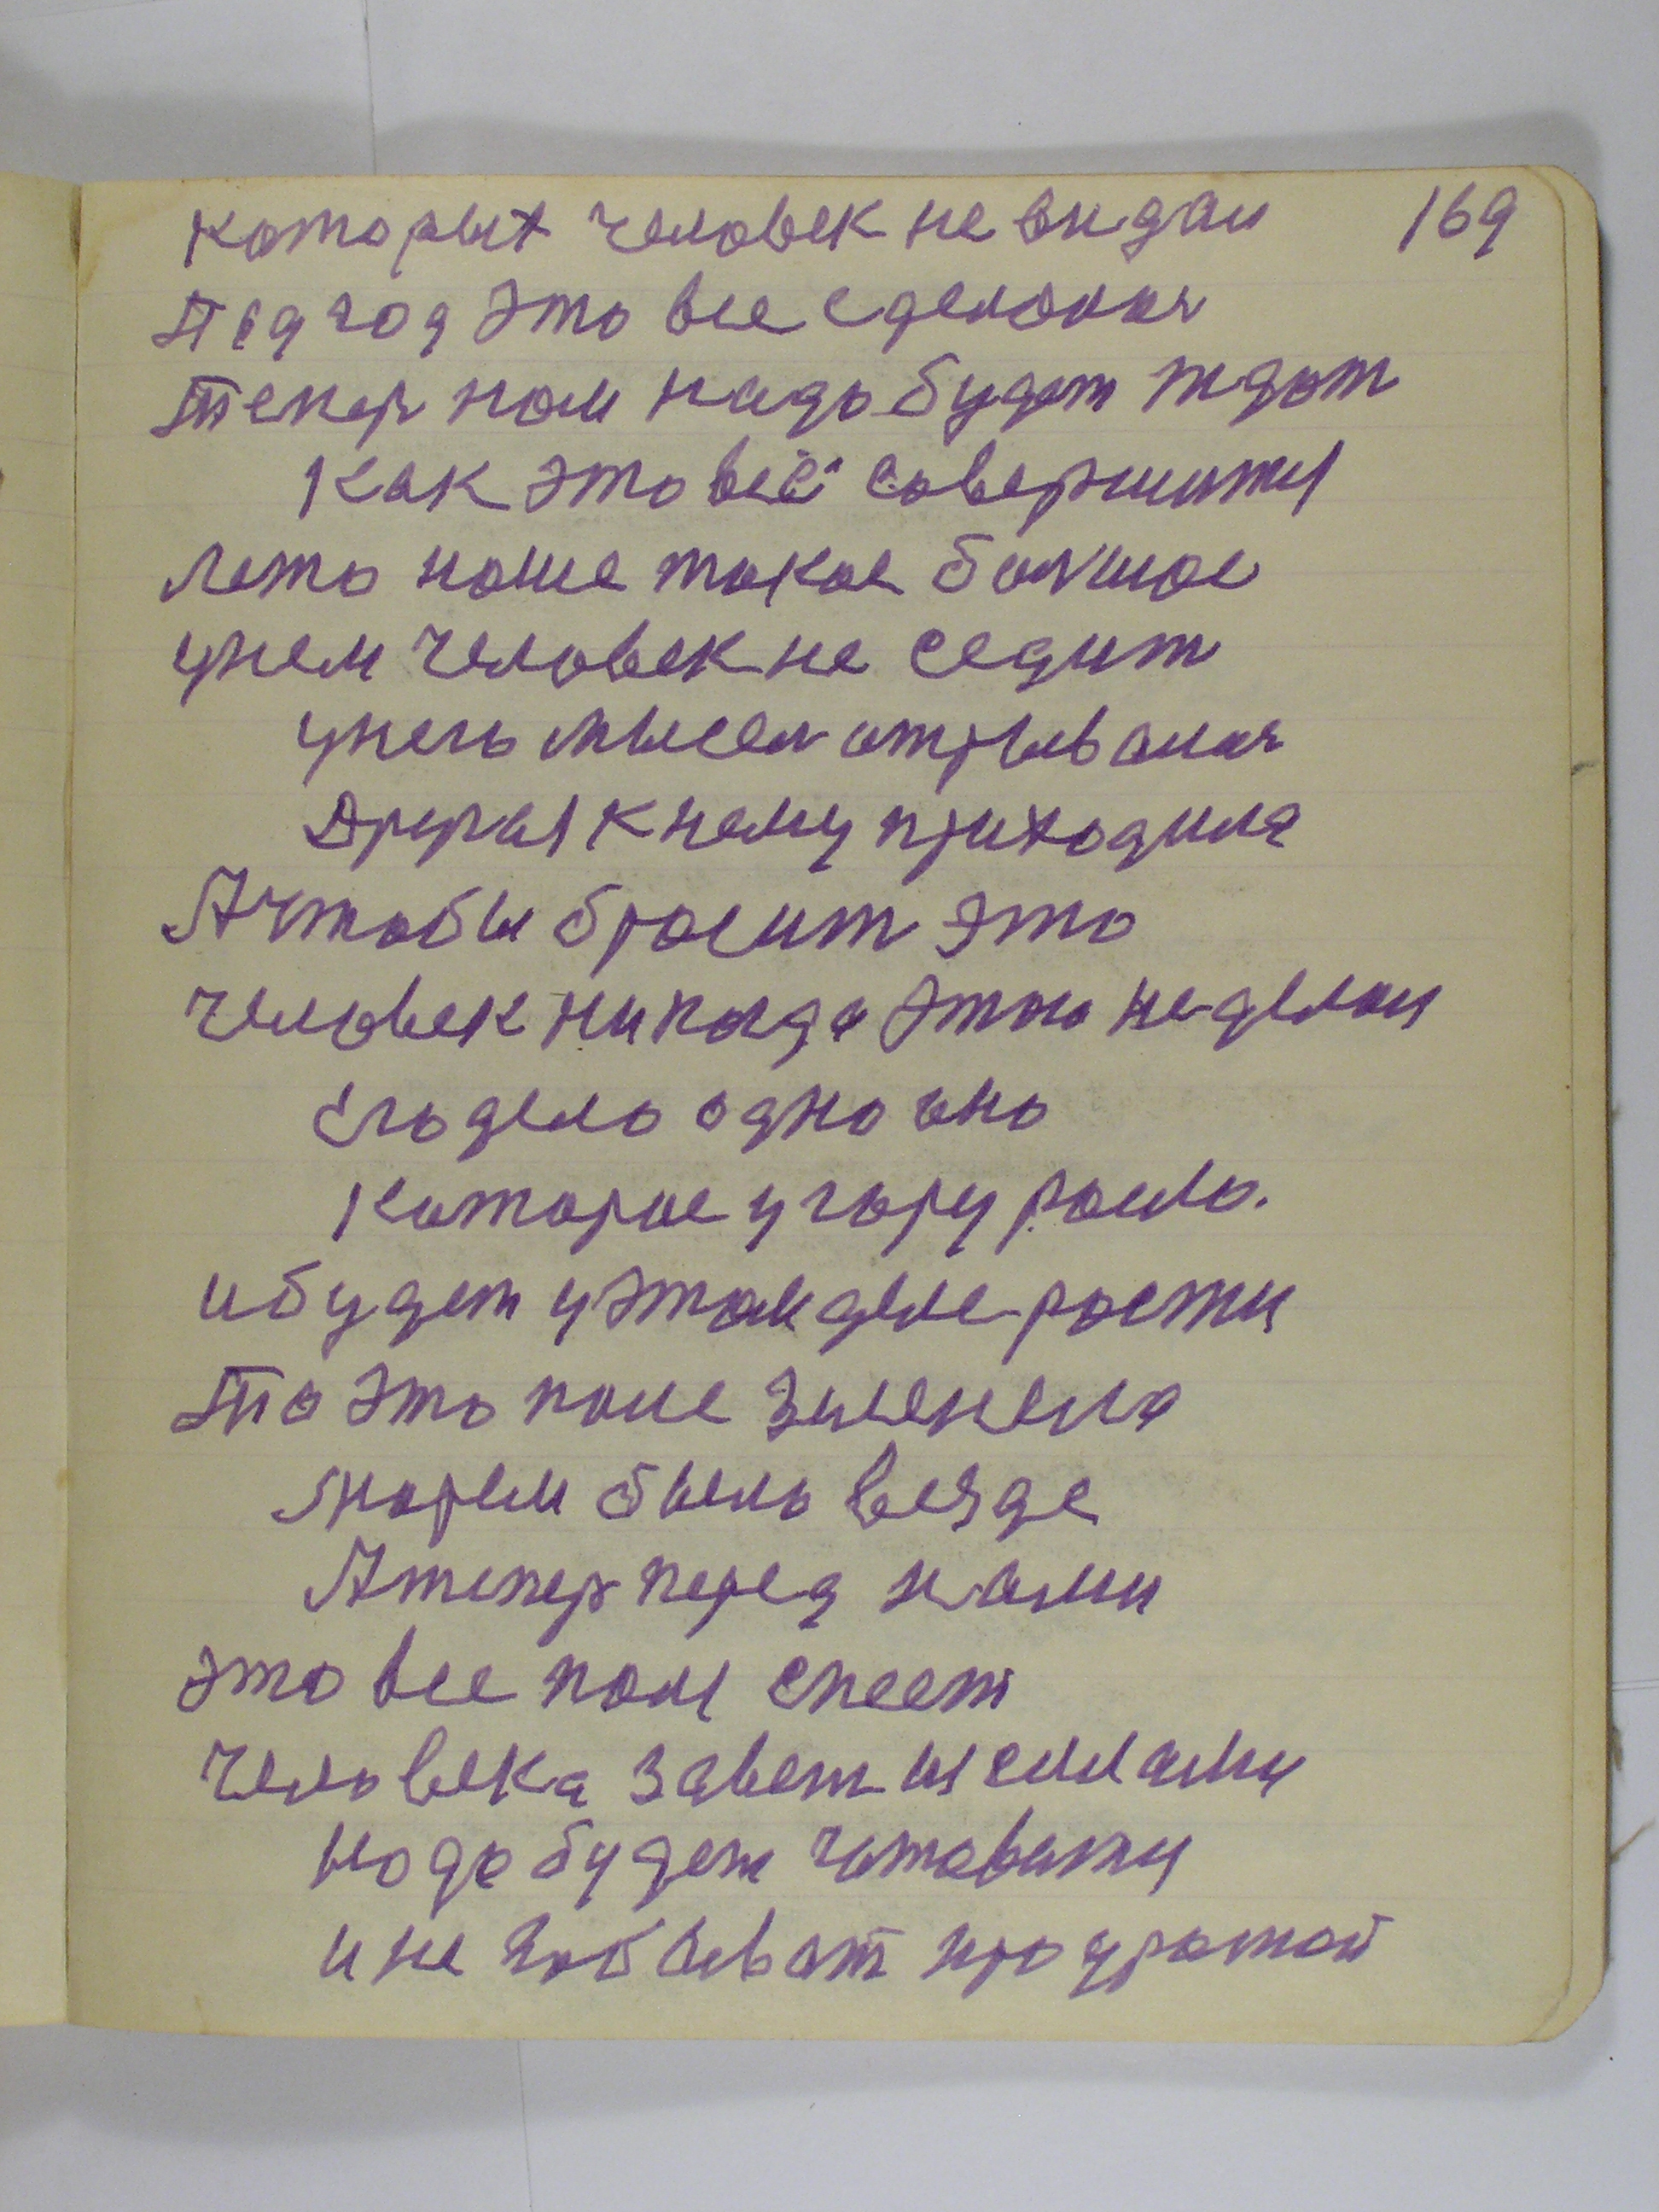 которых человек не видал 169
Под год это все сделался
Тепер нам надо будет ждат
Как это всё совершится
Лето наше такое болшое
унем человек не седит
унего мысел отрывался
Другая к нему приходила
А чтобы бросит это
Человек никогда этого не делал
Его дело одно оно
Которое угору росло.
и будет уэтом деле рости
То это поле зиленела
морем было везде
А тепер перед нами
это все поля спеет
Человека завет
Надо будет готовится
и не забыват про